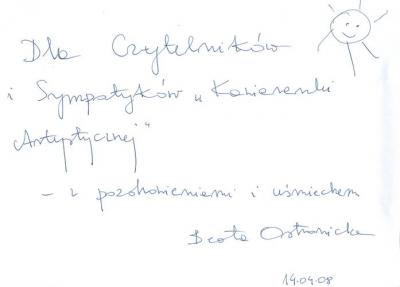 Dla Czytelników
i Sympatyków „Kawiarenki
Artystycznej”
- z pozdrowieniami i uśmiechem
Beata Ostrowicka
14.04.08